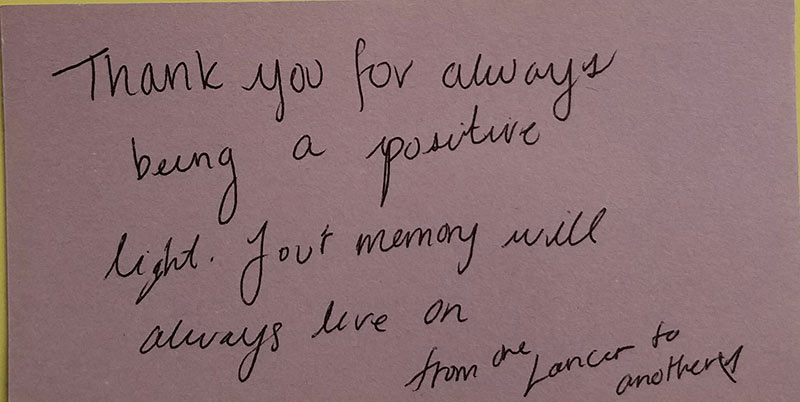 Thank you for always
being a positive
light. Your memory will
always live on
from one Lancer to
another